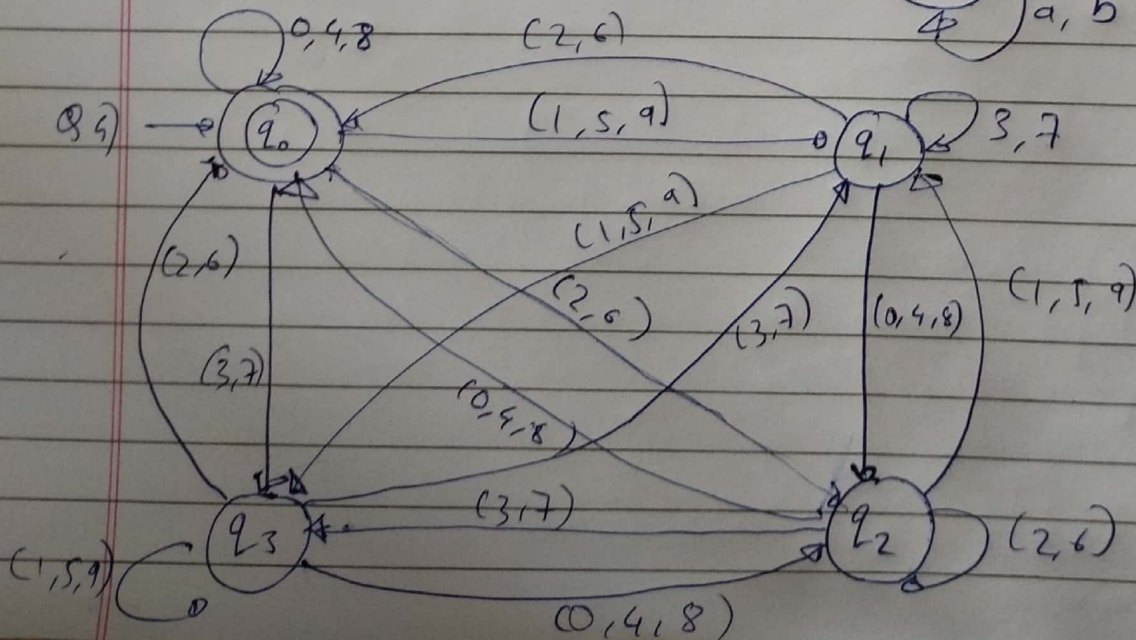 a, b
0,4,8
(2,6)
Q4)
q0
(1,5,9)
q1
3,7
(1,5,9)
(2,6)
(2,6)
(3,7)
(0,4,8)
(1,5,9)
(3,7)
(0,4,8)
(3,7)
q3
q2
(2,6)
(1,5,9)
(0,4,8)